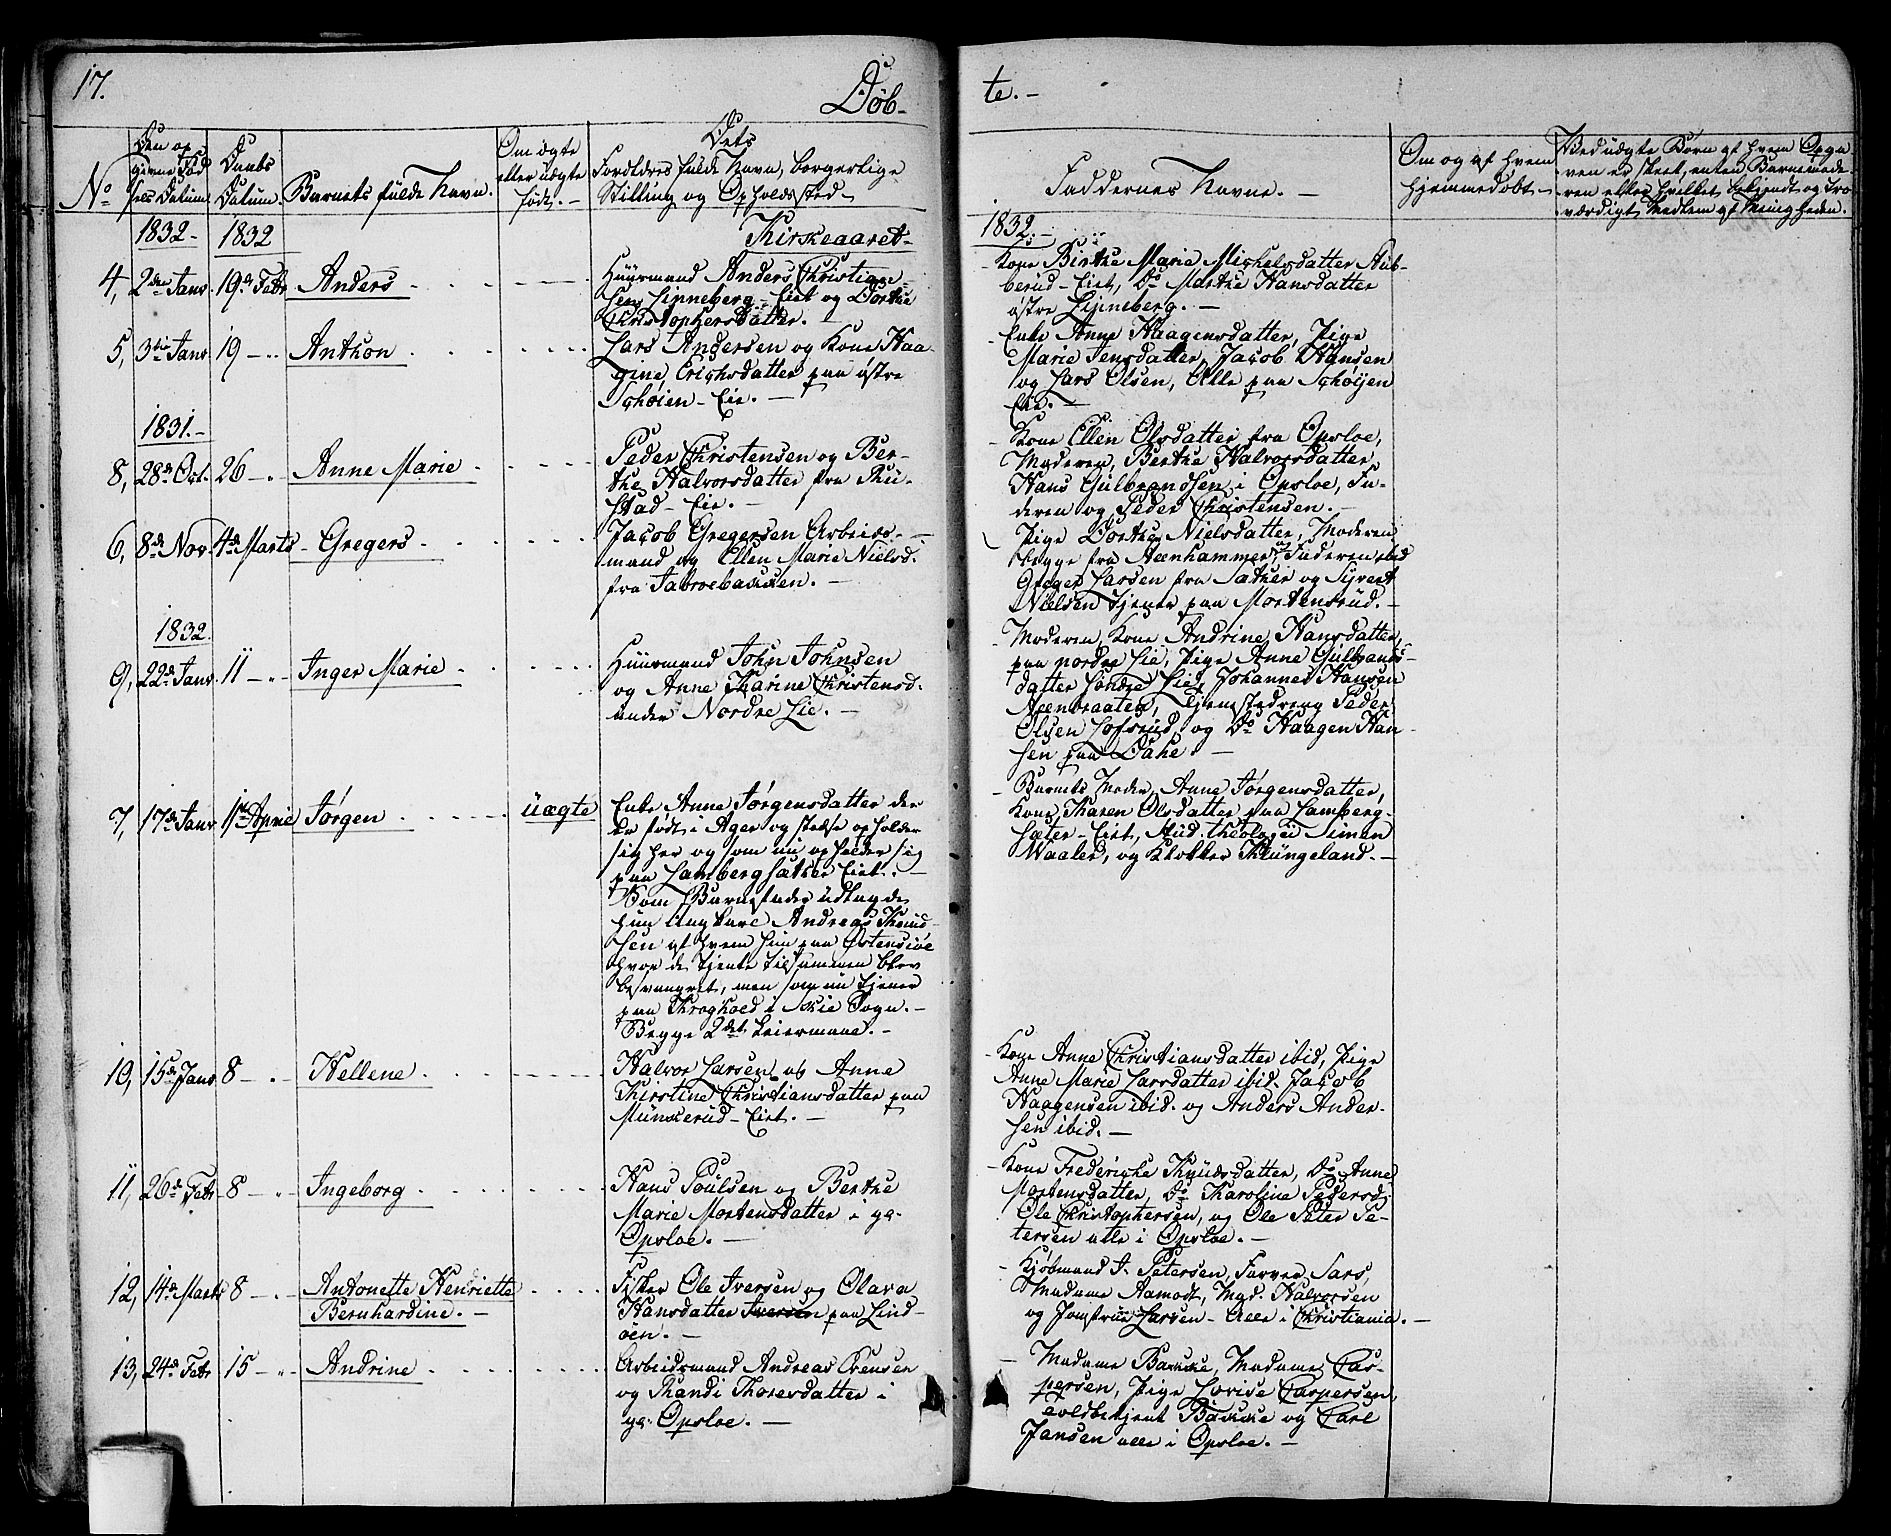 17.
Døb-
te. -
No
Den op
givne Fød
sels Datum
Daabs
Datum
Barnets fulde Navn.
Om ægte
eller uægte
født. -
Dets
Forældres fulde Navn, borgerlige
Stilling og Opholdssted
Faddernes Navne. -
Om og af hvem
hjemmedøbt. -
Ved uægte Børn af hvem Opga
ven er skeet, enten Barnemode-
ren eller hvilket bekjendt og tro
værdigt Medlem af Menigheden.
1832 1832 Kirkeaaret-
1832. -
4, 2den Janr 19de Febr Anders
Huusmand Anders Christian-
sen Linneberg-Eiet og Dorthe
Christophersdatter. -
- Kone Birthe Marie Michelsdatter Aub-
berud-Eiet, Do Marthe Hansdatter
østre Linneberg. -
5, 3die Janr 19 - " Anthon
Lars Andersen og Kone Haa-
gine Erichsdatter paa østre
Schøien-Eie. -
- Enke Anne Haagensdatter, Pige
Marie Jensdatter, Jacob Hansen
og Lars Olsen, Alle paa Schøyen
Eie. -
1831. -
8, 28de Oct. 26 - " Anne Marie
Peder Christensen og Ber-
the Halvorsdatter fra Ru-
stad-Eie. -
- Kone Ellen Olsdatter fra Opsloe,
Moderen, Berthe Halvorsdatter,
Hans Gulbrandsen i Opsloe, Fa-
deren og Peder Christensen. -
6, 8de Nov. 4de Marts Gregers
Jacob Gregersen Arbeids-
mand og Ellen Marie Nielsd.
fra Jabroebakken. -
Pige Dorthe Nielsdatter, Moderen
begge fra Steenhammer og Faderen ibid
Greger Larsen fra Sæther og Syvert
Nielsen tjener paa Mortensrud. -
1832.
9, 22de Janr. 11 - " Inger Marie
Huusmand John Johnsen
og Anne Karine Christensd.
under Nordre Lie. -
- Moderen, Kone Andrine Hansdatter,
paa nordre Lie, Pige Anne Gulbrands-
datter søndre Lie, Johannes Hansen
Steenbraaten, Tjenestedreng Peder
Olsen Lofsrud, og Do Haagen Han-
sen paa Bakke. -
7, 17de Janr 1ste April Jørgen uægte
Enke Anne Jørgensdatter der
er født i Ager og stedse opholder
sig her og som nu opholder sig
paa Lambergsæther Eiet. -
Som Barnefader udlagde
hun Ungkarl Andreas Knud-
sen af hvem hun paa Østensiøe
hvor de tjente tilsammen blev
besvangret, men som nu tjener
paa Kroghoed i Skie Sogn. -
Begge 2det Leiermaal. -
- Barnets Moder, Anne Jørgensdatter,
Kone Karen Olsdatter paa Lamberg-
sæter-Eiet, Stud. theologiæ Simen
Waaler, og Klokker Klungeland. -
10, 15de Janr 8 - " Hellene
Halvor Larsen og Anne
Kirstine Christiansdatter paa
Munkerud-Eiet. -
- Kone Anne Christiansdatter ibid, Pige
Anne Marie Larsdatter ibid. Jacob
Haagensen ibid. og Anders Ander-
sen ibid. -
11, 26de Febr 8 - " Ingeborg
Hans Poulsen og Berthe
Marie Mortensdatter i ga-
Opsloe. -
- Kone Frederiche Knudsdatter, Do Anne
Mortensdatter, Do Karoline Pedersd.
Ole Christophersen, og Ole Peter Pe-
tersen alle i Opsloe. -
12, 14de Marts 8 - " Antonette Henriette
Bernhardine. -
Fisker Ole Iversen og Olava
Hansdatter Iversen paa Lind-
øen. -
- Kjøbmand J. Petersen, Farver Sars,
Madame Aamodt, Mad. Halvorsen
og Jomfrue Larsen- Alle i Christiania. -
13, 24de Febr 15 - " Andrine
Arbeidsmand Andreas Evensen
og Randi Thoresdatter i
ga- Opsloe. -
- Madame Bakke, Madame Cas-
persen, Pige Lovise Caspersen,
Toldbetjent Bakke og Carl
Jansen alle i Opsloe. -